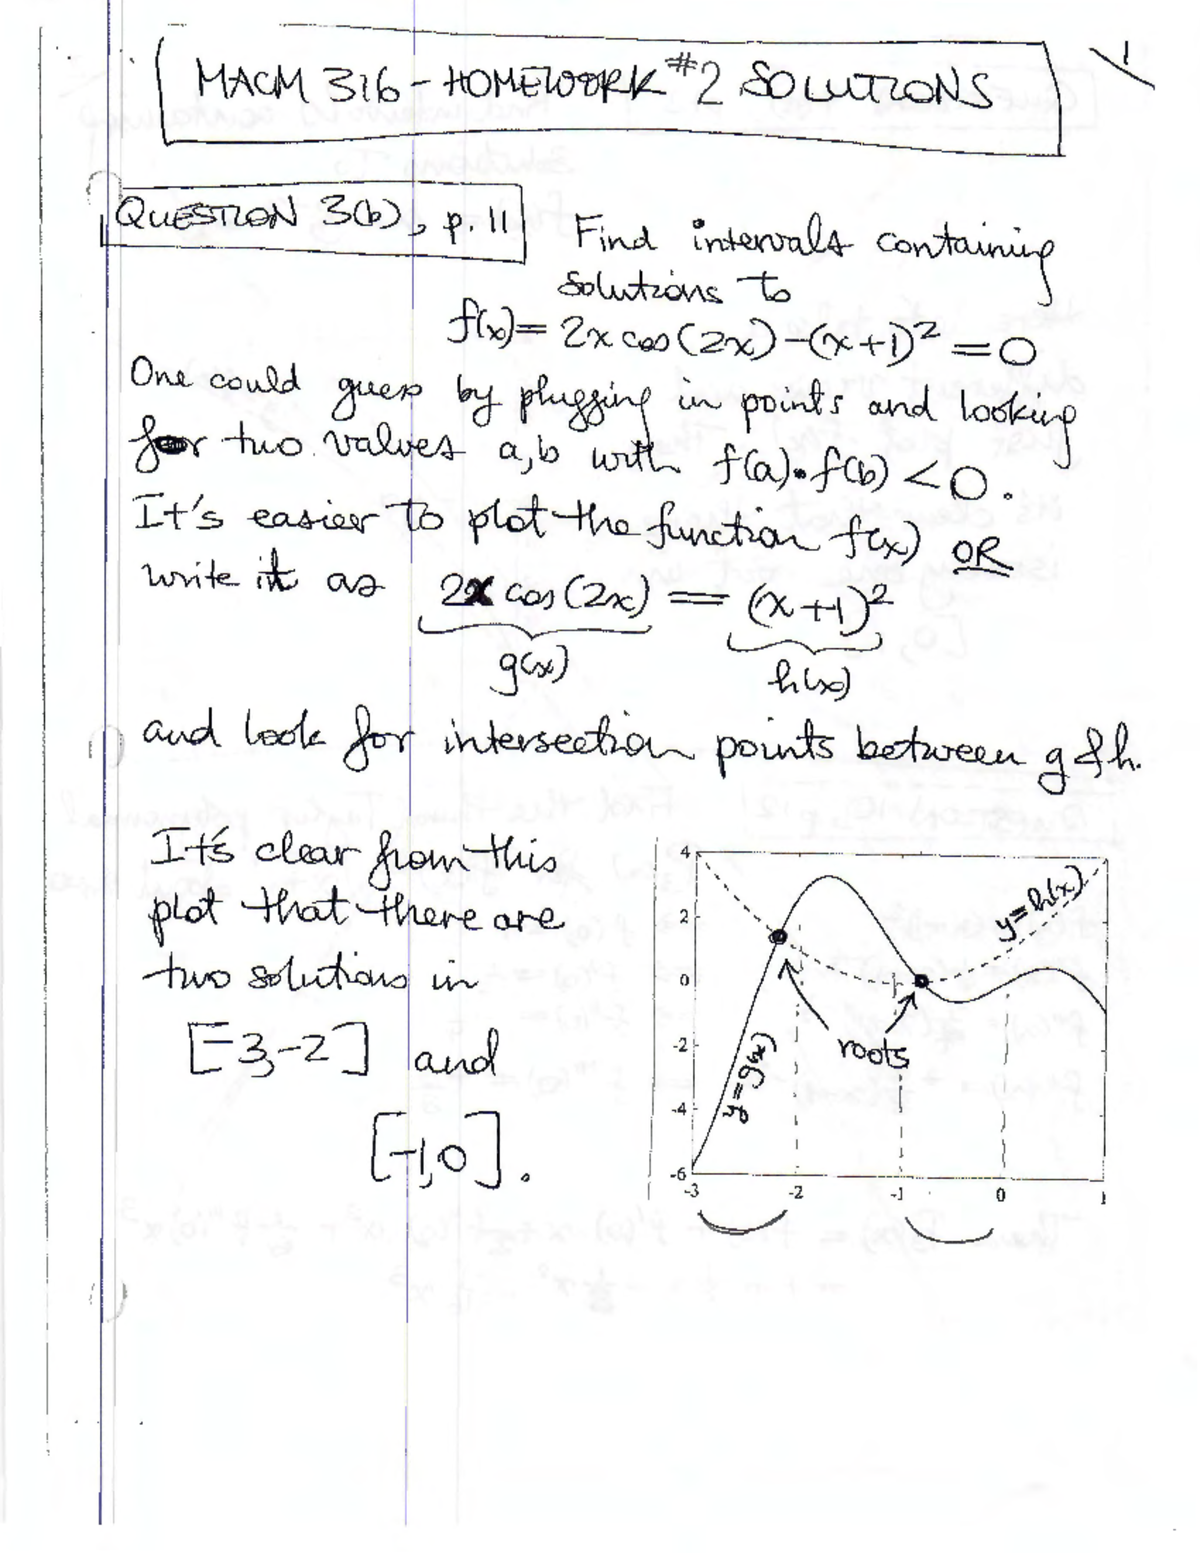 1
MACM 316 - HOMEWORK #2 SOLUTIONS
QUESTION 3(b), p. 11
Find intervals containing
solutions to
f(x) = 2x cos(2x) - (x+1)² = 0
One could guess by plugging in points and looking
for two values a,b with f(a)•f(b) < 0.
It's easier to plot the function f(x) OR
write it as 2x cos(2x) = (x+1)²
g(x) h(x)
and look for intersection points between g & h.
It's clear from this
plot that there are
two solutions in
[-3,-2] and
[-1,0].
4
2
0
-2
-4
-6
-3 -2 -1 0 1
y=h(x)
y=g(x)
roots